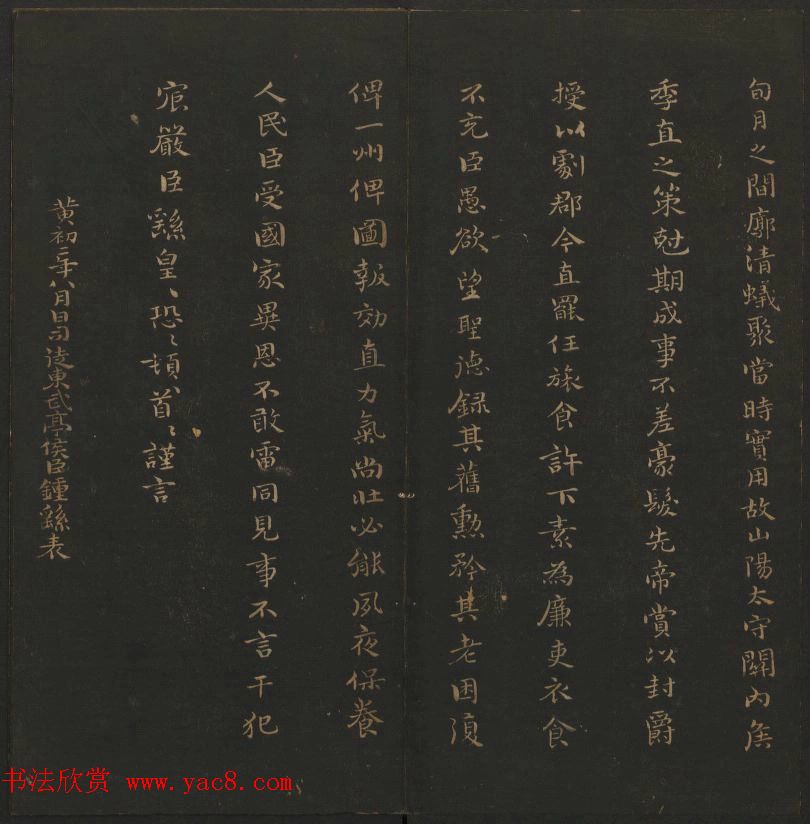 旬月之間廓清蟻聚當時實用故山陽太守關内侯
季直之策尅期成事不差豪髮先帝賞以封爵
授以劇郡今直罷任旅食許下素為廉吏衣食
不充臣愚欲望聖德録其舊勲矜其老困復
俾一州俾圖報効直力氣尚壯必能夙夜保養
人民臣受國家異恩不敢雷同見事不言干犯
宸嚴臣繇皇〻恐〻頓首〻謹言
黃初二年八月日司徒東武亭侯臣鍾繇表
书法欣赏 www.yac8.com